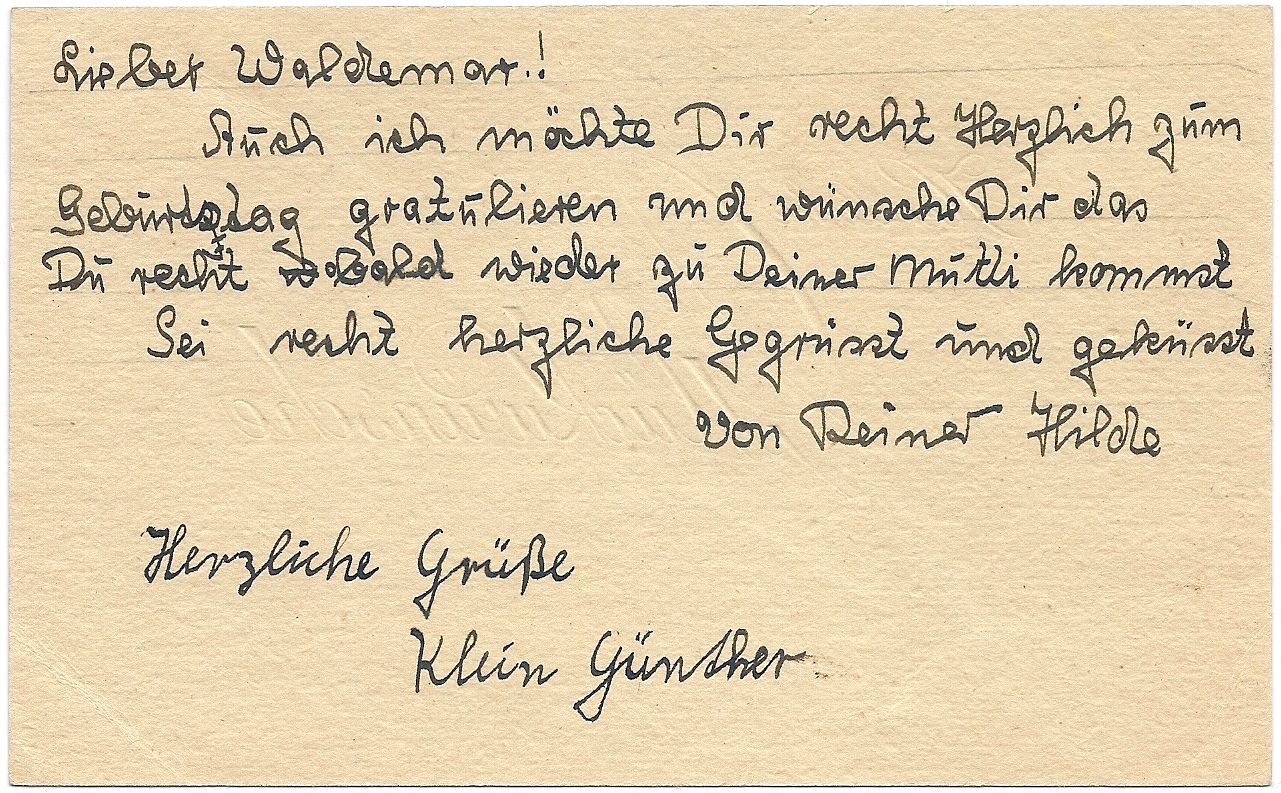 Lieber Waldemar.!
Auch ich möchte Dir recht Herzlich zum
Geburtstag gratulieren und wünsche Dir das
Du recht bald wieder zu Deiner Mutti kommst
Sei recht herzliche Gegrüsst und geküsst
von Deiner Hilde
Herzliche Grüße
Klein Günther